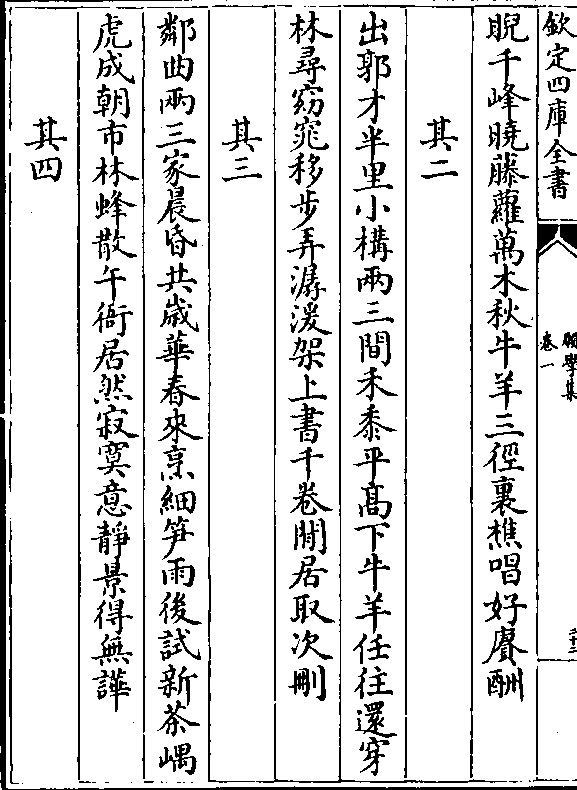 欽定四庫全書
卷一
睨千峰曉藤蘿萬木秋牛羊三徑裏樵唱好賡酬
其二
出郭才半里小構兩三間禾黍平高下牛羊任往還穿
林尋窈窕移步弄潺湲架上書千卷閒居取次刪
其三
鄰曲兩三家晨昏共歲華春來烹細笋雨後試新茶嵎
虎成朝市林蜂散午衙居然寂寞意靜景得無譁
其四